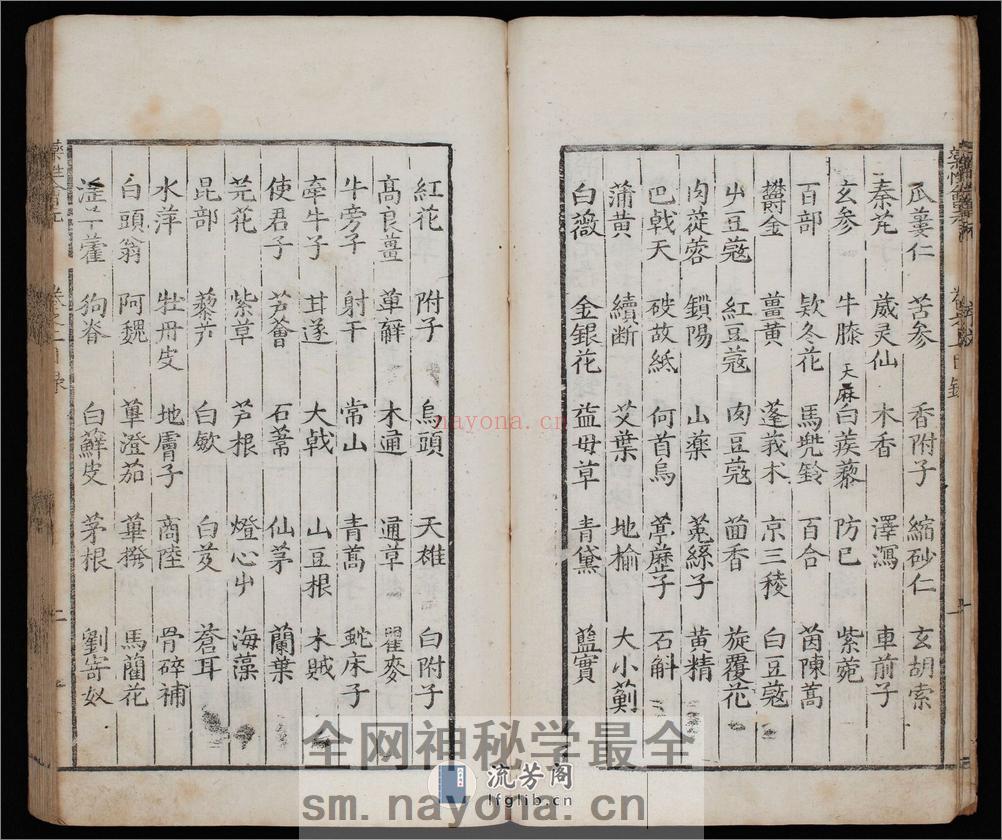 瓜蔞仁 苦参 香附子 縮砂仁 玄胡索
秦芃 葳灵仙 木香 澤瀉 車前子
玄参 牛膝 天麻 白蒺藜 防巳 紫菀
百部 欵冬花 馬兜鈴 百合 茵陳蒿
欝金 薑黄 蓬莪朮 京三稜 白豆蔻
屮豆蔻 紅豆蔻 肉豆蔻 茴香 旋覆花
肉蓯蓉 鎖陽 山藥 菟絲子 黄精
巴戟天 破故紙 何首烏 葶藶子 石斛
蒲黄 續断 艾葉 地榆 大小薊
白薇 金銀花 益母草 青黛 藍實
紅花 附子 烏頭 天雄 白附子
高良薑 萆薢 木通 通草 瞿麥
牛旁子 射干 常山 青蒿 蛇床子
牽牛子 甘遂 大戟 山豆根 木賊
使君子 芦薈 石葦 仙茅 蘭葉
芫花 紫草 芦根 燈心屮 海藻
昆部 藜芦 白蘞 白芨 蒼耳
水萍 牡丹皮 地膚子 商陸 骨碎補
白頭翁 阿魏 蓽澄茄 蓽撥 馬藺花
淫羊藿 狗脊 白蘚皮 茅根 劉寄奴
nayona.com
全网神秘学最全
流芳阁
lfglib.cn
sm.nayona.cn